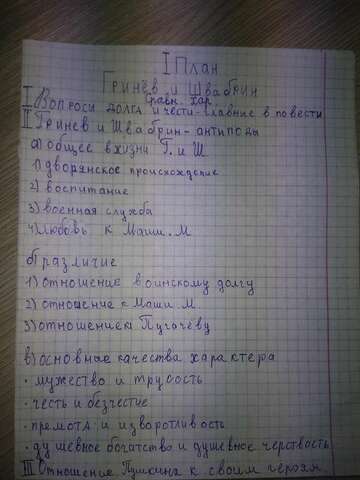 I План
Гринёв и Швабрин
Сравн. хар.
I Вопросы долга и чести - главные в повести
II Гринев и Швабрин - антиподы
а) общее в жизни Г. и Ш.
1) дворянское происхождение
2) воспитание
3) военная служба
4) любовь к Маши. М
б) различие
1) отношение воинскому долгу
2) отношение к Маши. М
3) отношение к Пугачёву
в) основные качества характера
• мужество и трусость
• честь и бесчестие
• премота и изворотливость
• душевное богатство и душевное черствость
III Отношение Пушкина к своим героям